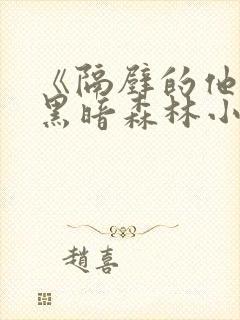 《隔壁的他
黑暗森林小
趙喜